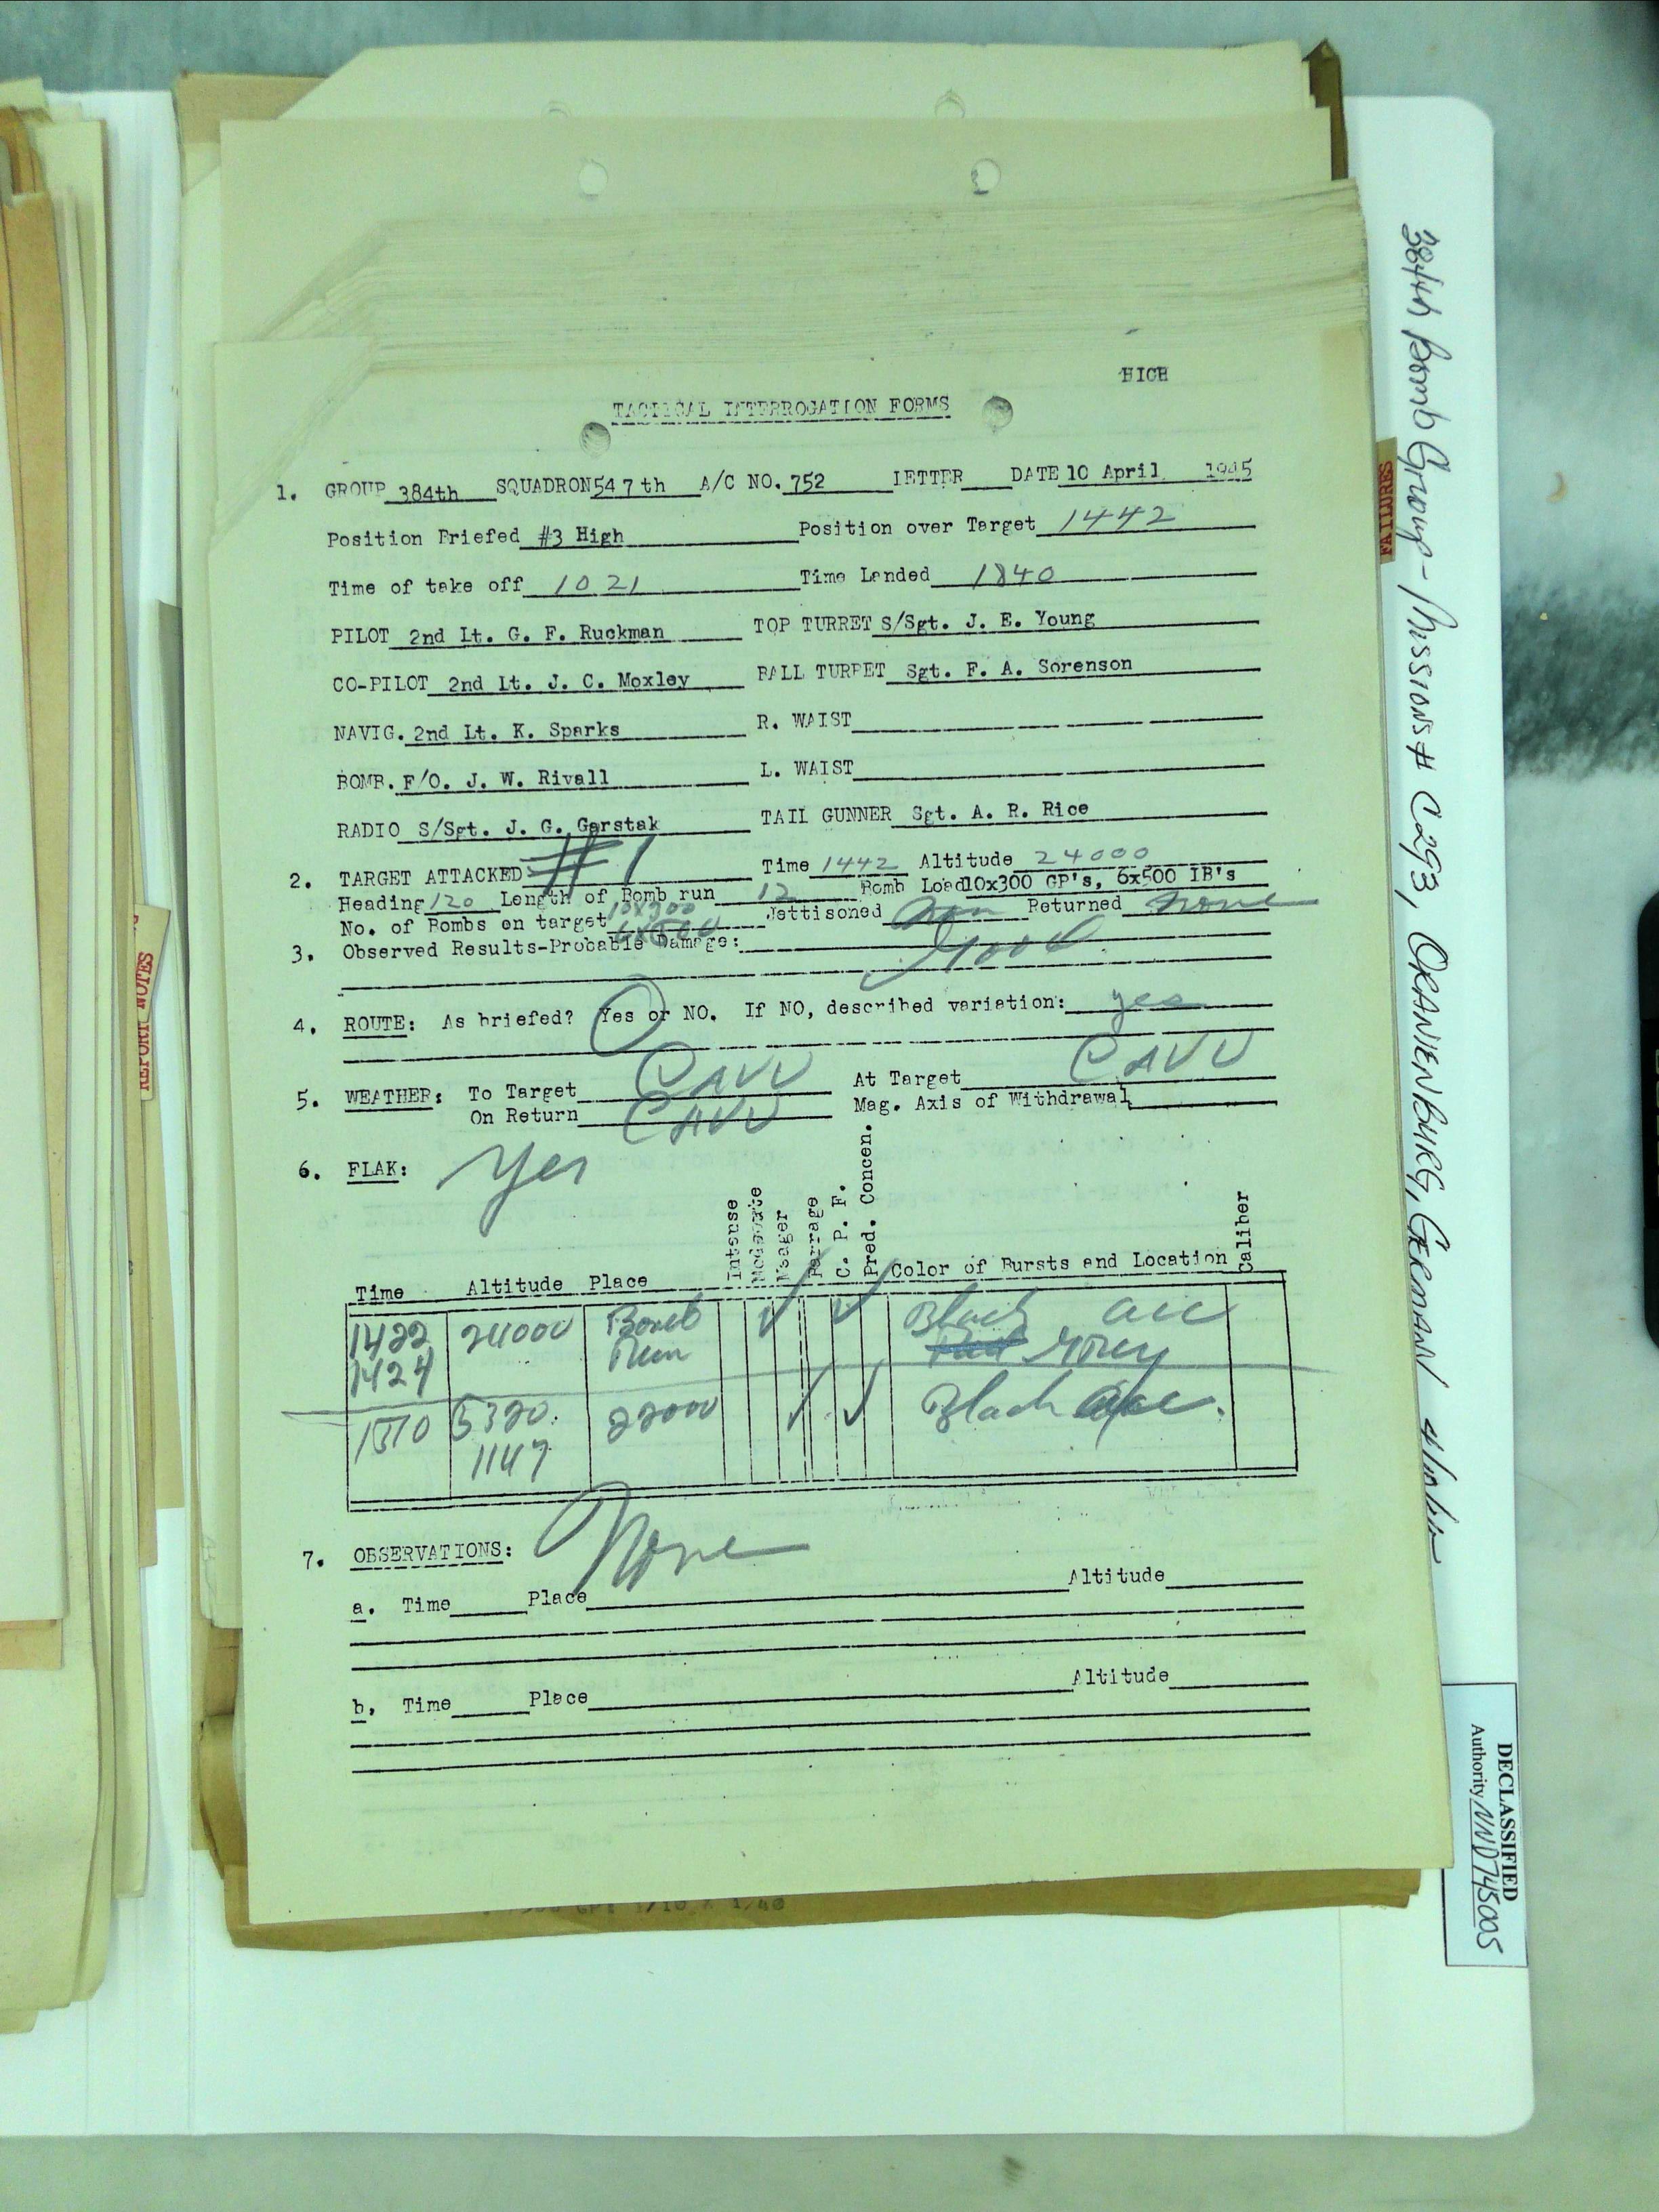 HIGH
TACTICAL INTERROGATION FORMS
1. GROUP 384th SQUADRON 547th A/C NO. 752 LETTER DATE 10 April 1945
Position Briefed #3 High Position over Target 1442
Time of take off 1021 Time Landed 1840
PILOT 2nd Lt. G. F. Ruckman TOP TURRET S/Sgt. J. E. Young
CO-PILOT 2nd Lt. J. C. Moxley BALL TURRET Sgt. F. A. Sorenson
NAVIG. 2nd Lt. K. Sparks R. WAIST
BOMB. F/O. J. W. Rivall L. WAIST
RADIO S/Sgt. J. G. Garstak TAIL GUNNER Sgt. A. R. Rice
2. TARGET ATTACKED #1 Time 1442 Altitude 24000
Heading 120 Length of Bomb run 12 Bomb Load 10x300 GP's, 6x500 IB's
No. of Bombs on target 10x300 6x500 Jettisoned Non Returned None
3. Observed Results-Probable Damage: Good
4. ROUTE: As briefed? Yes or NO. If NO, described variation: yes
5. WEATHER: To Target CAVU At Target CAVU
On Return CAVU Mag. Axis of Withdrawal
6. FLAK: Yes
Time Altitude Place Intense Moderate Meager Barrage C. P. F. Pred. Concen. Color of Bursts and Location Caliber
1422 24000 Bomb Black acc
1424 Run Grey
1510 5320 22000 Black acc.
1147
7. OBSERVATIONS: None
a. Time Place Altitude
b. Time Place Altitude
384th Bomb Group - Missions # C293, ORANIENBURG, GERMANY
FAILURES
REPORT NOTES
DECLASSIFIED
Authority NND745005